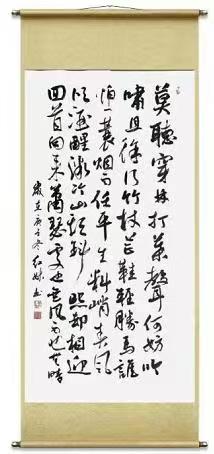 莫聽穿林打葉聲何妨吟
嘯且徐行竹杖芒鞋輕勝馬誰
怕一蓑烟雨任平生料峭春風
吹酒醒微冷山頭斜照却相迎
回首向来蕭瑟處也無風雨也無晴
歲在庚子冬